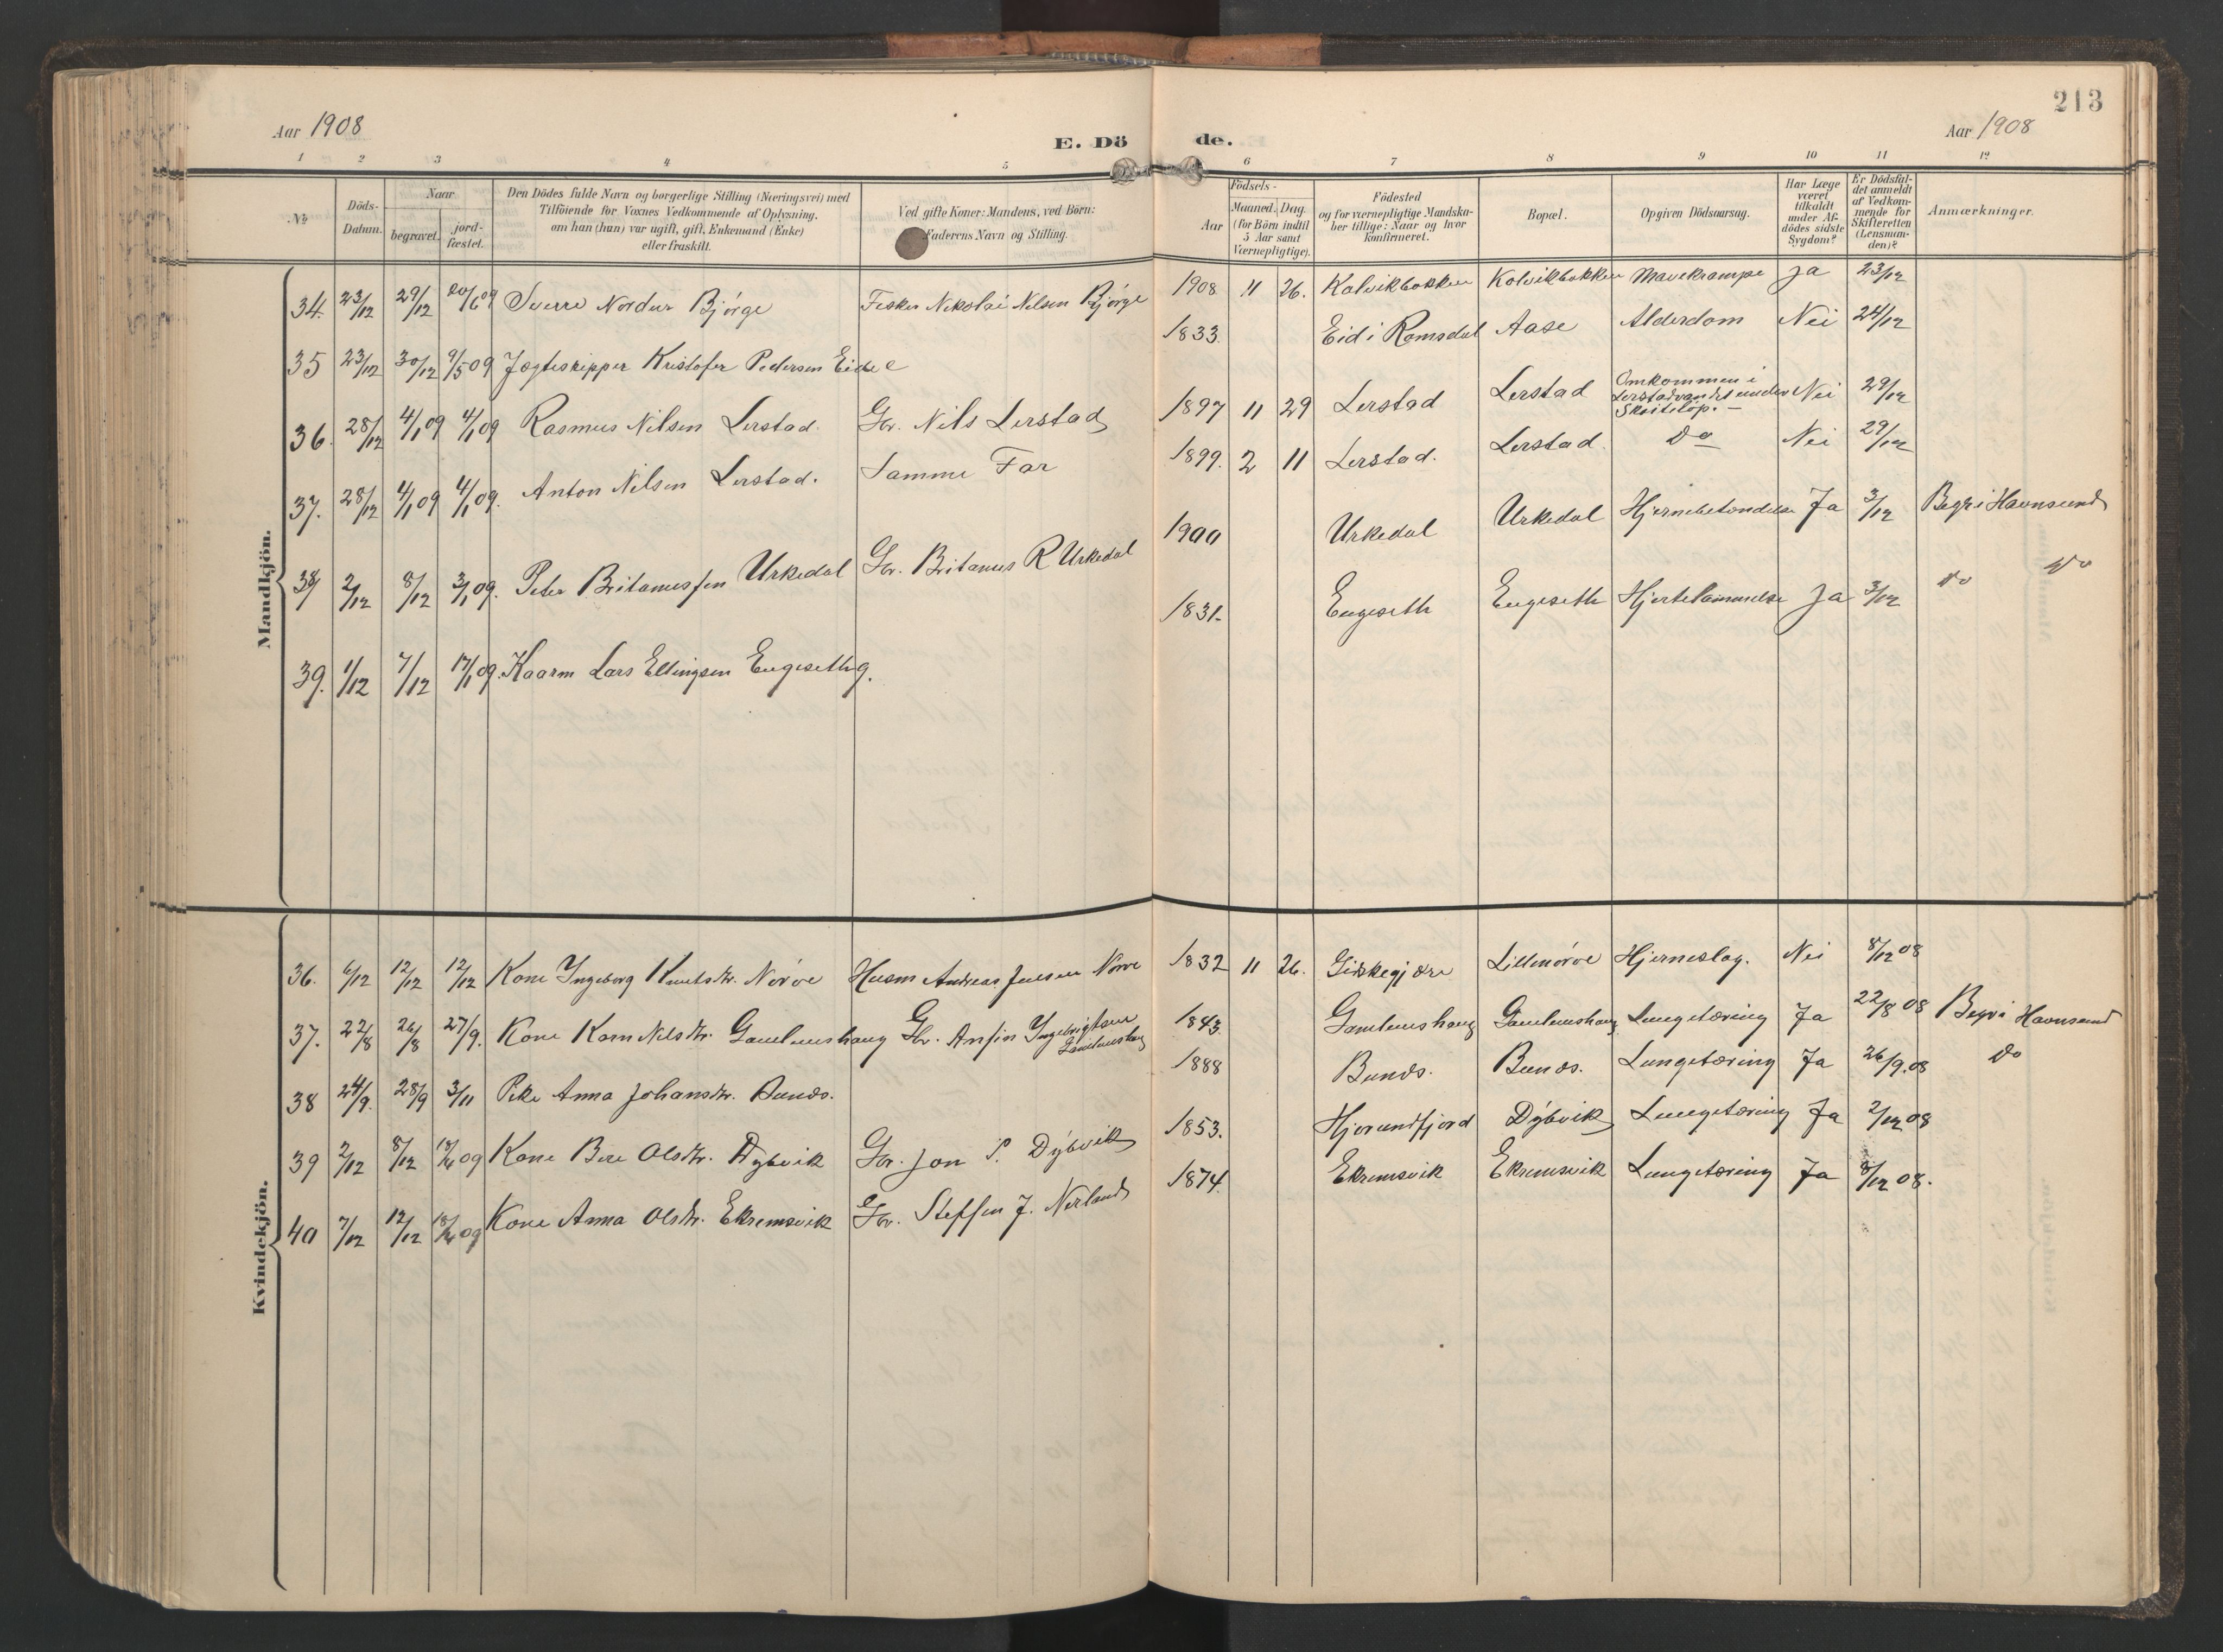 213
Aar 1908
E. Dö de.
Aar 1908
1 2 3 4 5 6 7 8 9 10 11 12
No
Döds-Datum.
Naar
begravet.
jord-fæstet.
Den Dödes fulde Navn og borgerlige Stilling (Næringsvei) med
Tilföiende for Voxnes Vedkommende af Oplysning,
om han (hun) var ugift, gift, Enkemand (Enke)
eller fraskilt.
Ved gifte Koner: Mandens, ved Börn:
Faderens Navn og Stilling.
Födsels-
Aar
Maaned. Dag.
(for Börn indtil
5 Aar samt
Værnepligtige).
Födested
og for værnepligtige Mandska-
ber tillige: Naar og hvor
konfirmeret.
Bopæl.
Opgiven Dödsaarsag.
Har Læge
været
tilkaldt
under Af-
dödes sidste
Sygdom?
Er Dödsfal-
det anmeldt
af Vedkom-
mende for
Skifteretten
(Lensman-
den)?
Anmærkninger.
Mandkjön.
34. 23/12 29/12 20/6 09 Sverre Nordur Bjørge Fisker Nikolai Nilsen Bjørge 1908 11 26. Kalvikbakken Kolvikbakken Mavekrampe Ja 23/12
35 23/12 30/12 9/5 09 Jægteskipper Kristofer Pedersen Eide e 1833. Eid i Romsdal Aase Alderdom Nei 24/12
36. 28/12 4/1 09 4/1 09 Rasmus Nilsen Lerstad. Gbr. Nils Lerstad 1897 11 29 Lerstad Lerstad Omkommen i
Lerstadvandet under
Skøiteløp. – Nei 29/12
37. 28/12 4/1 09 4/1 09. Anton Nilsen Lerstad. Samme Far 1899. 2 11 Lerstad. Lerstad. Do Nei 29/12
38 2/12 8/12 3/1 09. Peter Britanussen Urkedal Gbr. Britanus R Urkedal 1900 Urkedal Urkedal Hjernebetændelse Ja 3/12 Begr i Havnsund
39. 1/12 7/12 17/1 09. Kaarm Lars Ellingsen Engeseth g. 1831. Engeseth Engeseth Hjertelammelse Ja 3/12 Do Do
Kvindekjön.
36. 6/12 12/12 12/12 Kone Ingeborg Knutsdtr. Nørve Husm Andreas Jensen Nørve 1832 11 26. Giskegjære Lillenørve Hjerneslag. Nei 8/12 08
37. 22/8 26/8 27/9. Kone Karn Nilsdtr. Gamlemshaug Gbr. Ansin Ingebrigtsen
Gamlemshaug 1843. Gamlemshaug Gamlemshaug Lungetæring Ja 22/8 08 Begr i Havnsund
38 24/9. 28/9 3/11 Pike Anna Johansdtr. Bunds. 1888 Bunds. Bunds. Lungetæring Ja 26/9.08 Do
39 2/12 8/12 09 Kone Bere Olsdtr. Dybvik Gbr. Jon P. Dybvik 1853. Hjørundfjord Dybvik Lungetæring Ja 2/12 08
40 7/12 12/12 09 Kone Anna Olsdtr. Ekremsvik Gbr. Steffen J. Nerland 1874. Ekremsvik Ekremsvik Lungetæring Ja 8/12 08.